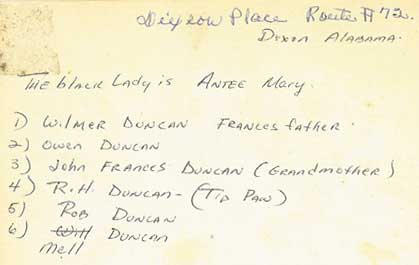 Dixson Place Route #72.
Dixon Alabama.
The black Lady is Antee Mary.
1) Wilmer Duncan Frances father.
2) Owen Duncan
3) John Frances Duncan (Grandmother)
4) R.H. Duncan - (Tip Paw)
5) Rob Duncan
6) Will Duncan
Mell